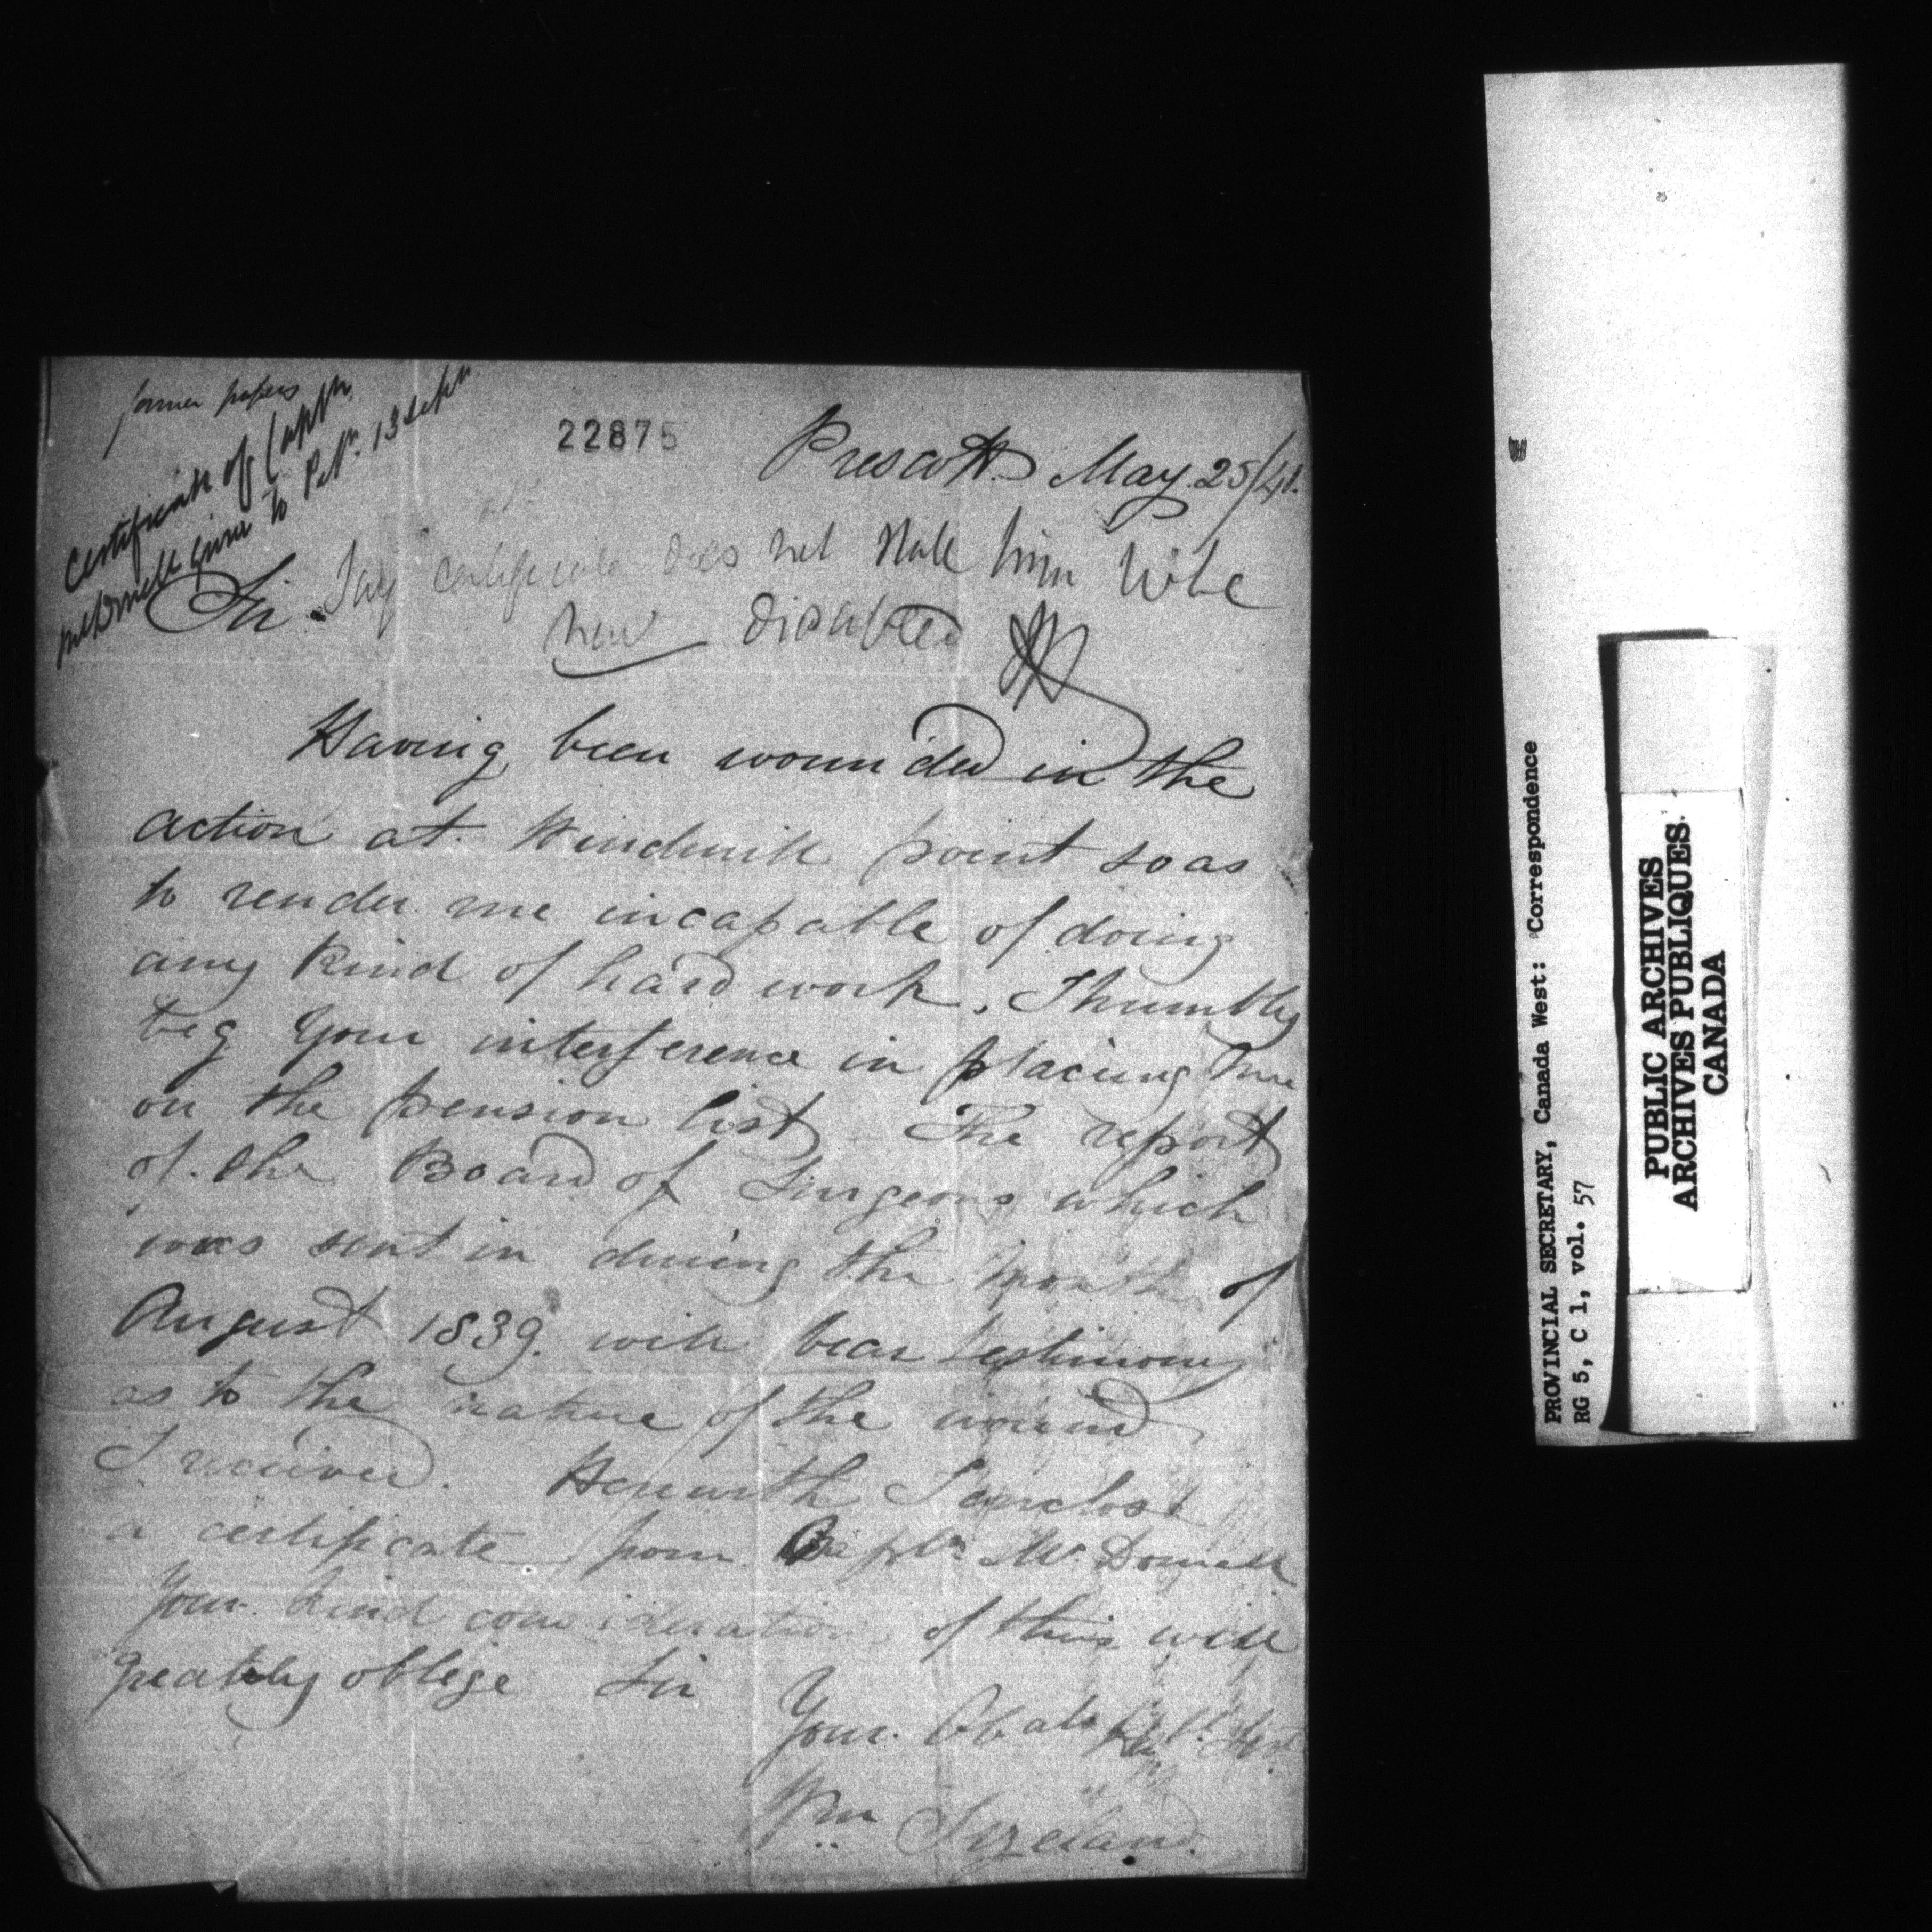 former papers
Certificate of Captn
McDonell given to Petr. 13 Septr
22875
Prescott May 25/41.
Sir
Say certificate does not state him to be
now disabled
Having been wounded in the
action at Windmill point so as
to render me incapable of doing
any kind of hard work, I humbly
beg your interference in placing me
on the pension list The report
of the Board of Surgeons which
was sent in during the month of
August 1839. will bear testimony
as to the nature of the wound
I received. Herewith I enclose
a certificate from Captn. McDonell
Your kind consideration of this will
greately oblige Sir
Your Obdt
Wm Sizeland.
PROVINCIAL SECRETARY, Canada West: Correspondence
RG 5, C 1, vol. 57
PUBLIC ARCHIVES
ARCHIVES PUBLIQUES
CANADA